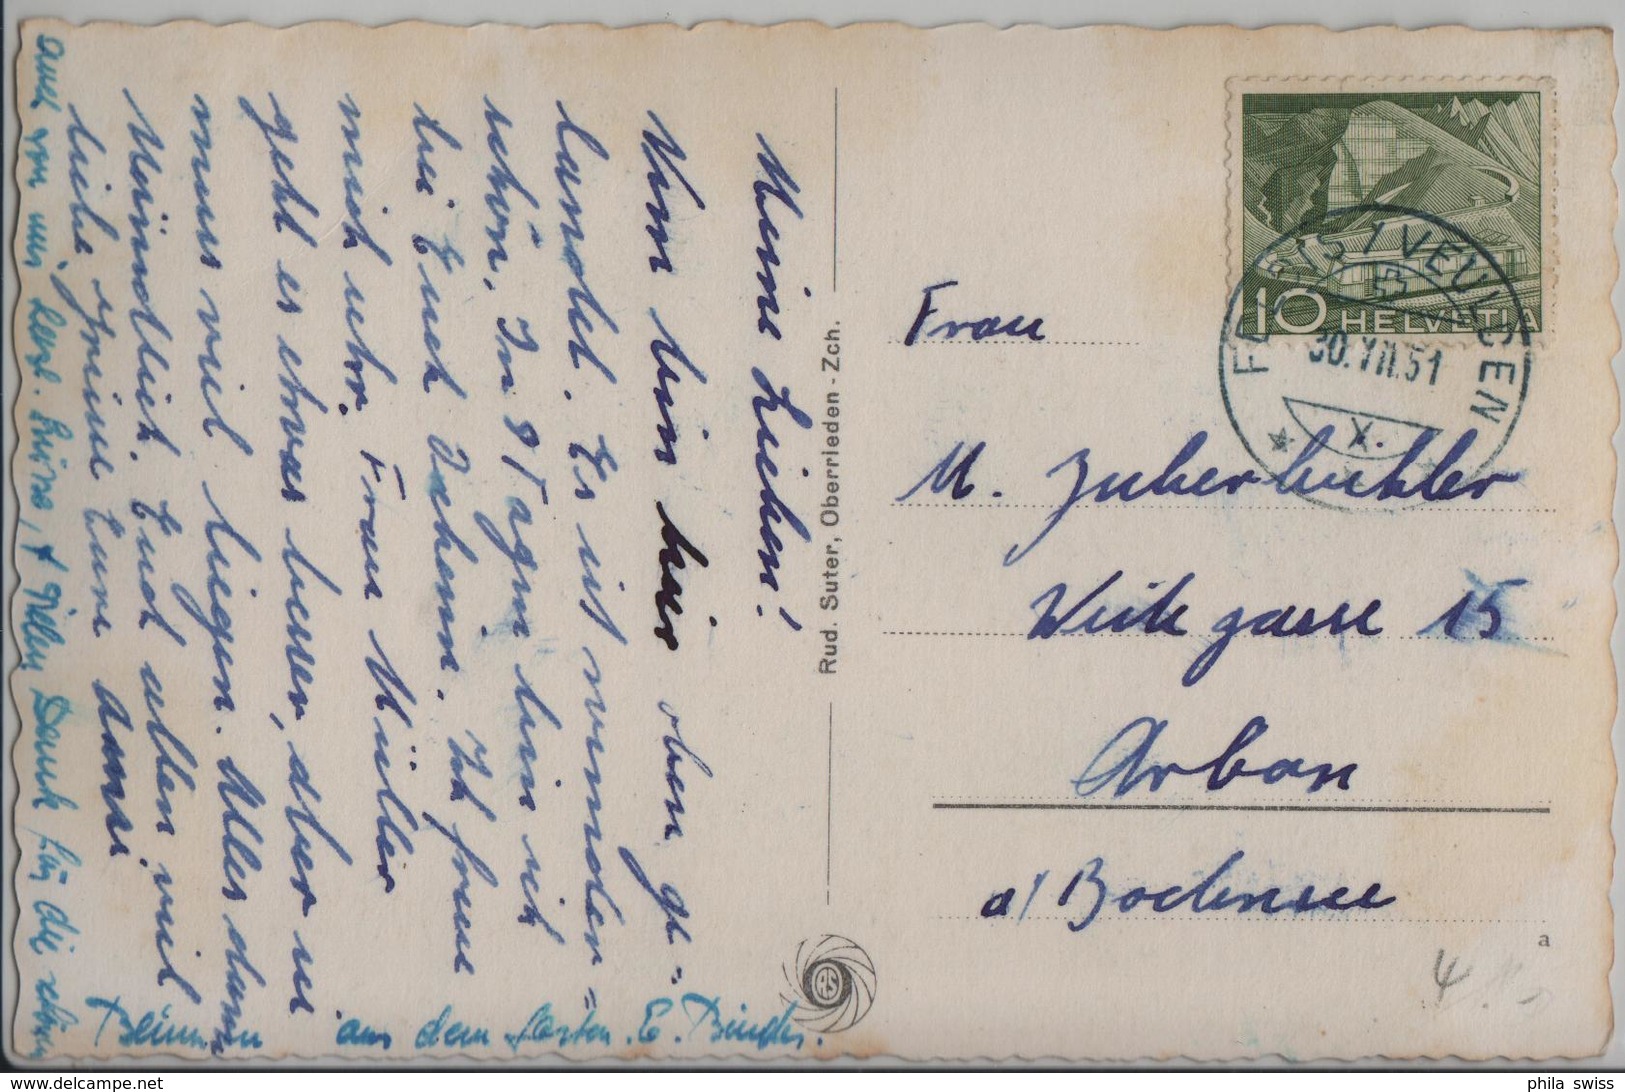 Meine Lieben!
Nun bin hier oben ge=
landet. Es ist wunder=
schön. In 8 Tagen bin ich
bei Euch daheim. Ich freue
mich sehr. Frau Müller
geht es etwas besser, aber sie
muss viel liegen. Alles dann
Mündlich. Euch allen viel
liebe Grüsse Eure Anni.
auch von mir herzl. Grüsse, & Vielen Dank für die schönen
Blumen aus dem Garten. E.
Rud. Suter, Oberrieden - Zch.
RS
HELVETIA
10
30.VII.51
X.
Frau
M. Zuberbuhler
Weitegasse 15
Arbon
a/ Bodensee
a
phila swiss
www.delcampe.net